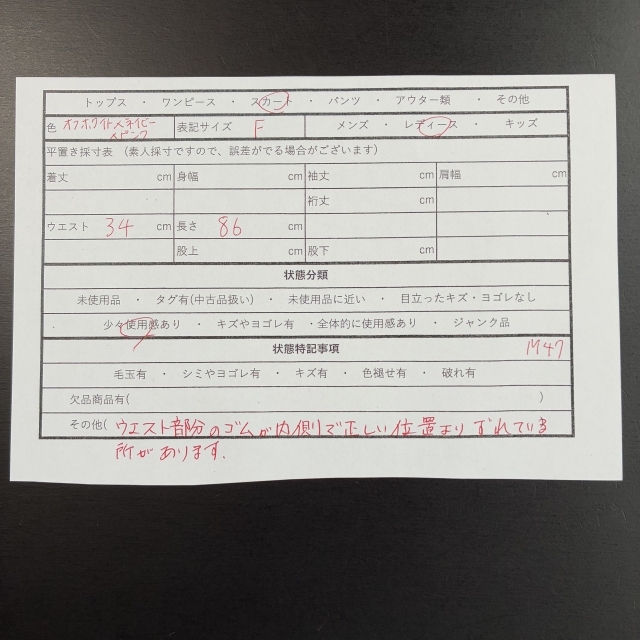 トップス ・ ワンピース ・ スカート ・ パンツ ・ アウター類 ・ その他
色 オフホワイト×ネイビー×ピンク 表記サイズ F メンズ ・ レディース ・ キッズ
平置き採寸表 (素人採寸ですので、誤差がでる場合がございます)
着丈 cm 身幅 cm 袖丈 cm 肩幅 cm
裄丈 cm
ウエスト 34 cm 長さ 86 cm
股上 cm 股下 cm
状態分類
未使用品 ・ タグ有(中古品扱い) ・ 未使用品に近い ・ 目立ったキズ・ヨゴレなし
少々使用感あり ・ キズやヨゴレ有 ・全体的に使用感あり ・ ジャンク品
状態特記事項 M47
毛玉有 ・ シミやヨゴレ有 ・ キズ有 ・ 色褪せ有 ・ 破れ有
欠品商品有( )
その他( ウエスト部分のゴムが内側で正しい位置よりずれている
所があります.